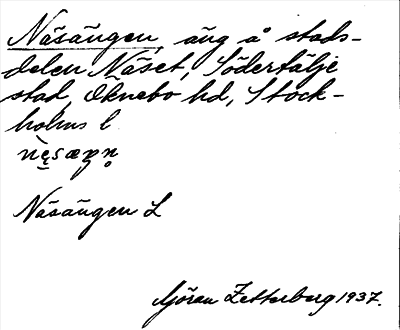 Näsängen, äng å stads-
delen Näset, Södertälje
stad, Öknebo hd, Stock-
holms l
Näsängen L
Göran Zetterberg 1937.